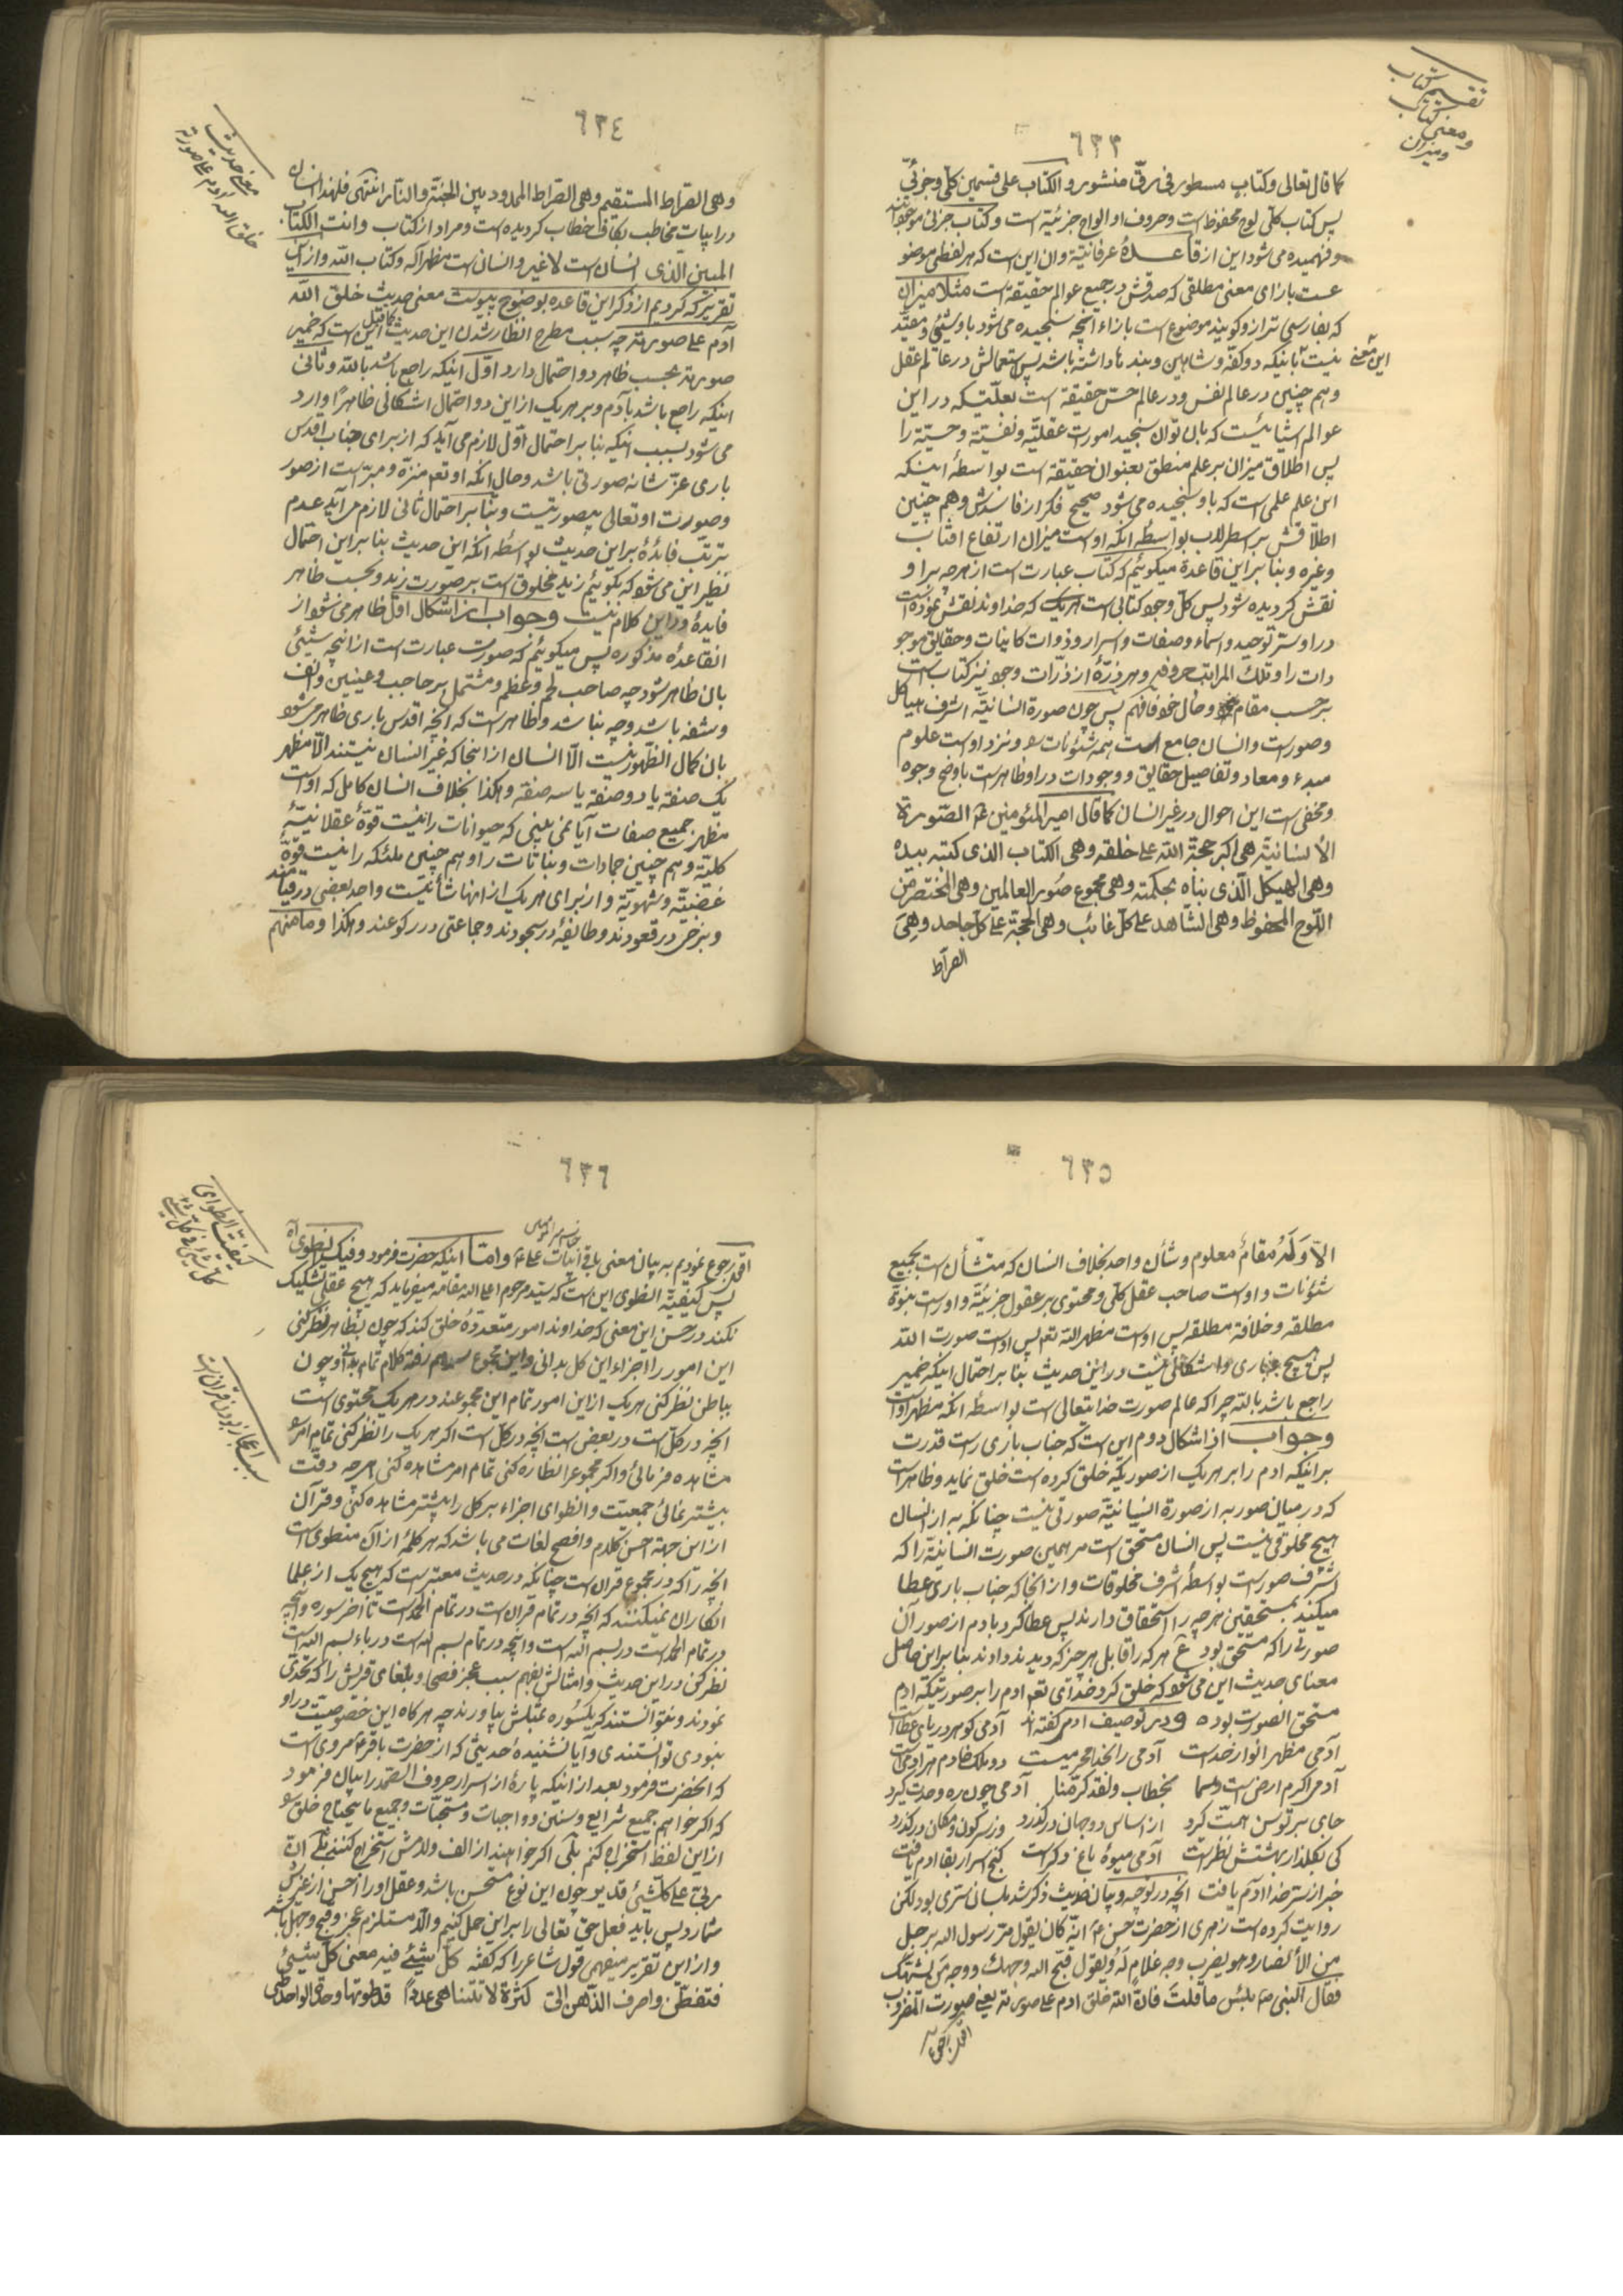 ٦٣٣
تقسیم کتاب
ومعنی کتاب
ومیزان
کما قال تعالی وکتاب مسطور فی رقّ منشور والکتاب علی قسمین کلّی وجزئیّ
پس کتاب کلّی لوح محفوظ است وحروف او الواح جزئیّه است وکتاب جزئی موجودات
وفهمیده می شود این از قاعدهٔ عرفانیّة وان این است که هر لفظی موضو
عست بازای معنی مطلقی که صدقش در جمیع عوالم حقیقة است مثلا میزان
که بفارسی ترازو کویند موضوع است بازاء انچه سنجیده می شود باو شیئی ومقیّد
این معنی نیست باینکه دو کفّه وشاهین وبندها داشته باشد پس استعمالش در عالم عقل
وهم چنین در عالم نفس ودر عالم حسّ حقیقة است بعلّتیکه در این
عوالم اشیائیست که بان توان سنجید امورات عقلیّه ونفسیّة وحسّیّة را
پس اطلاق میزان بر علم منطق بعنوان حقیقة است بواسطهٔ اینکه
این علم علمی است که باو سنجیده می شود صحیح فکر از فاسدش وهم چنین
اطلاقش بر اسطرلاب بواسطهٔ انکه اوست میزان ارتفاع افتاب
وغیره وبنا براین قاعدة میکوئیم که کتاب عبارت است از هرچه براو
نقش کردیده شود پس کلّ وجود کتابی است بزرک که خداوند نقش نموده است
در او سرّ توحید واسماء وصفات واسرار وذوات کاینات وحقایق موجو
دات را وتلک المراتب حروفه وهر ذرّهٔ از ذرّات وجود نیز کتاب است
بر حسب مقام وحال خود فافهم پس چون صورة انسانیّة اشرف هیاکل
وصور است وانسان جامع است همه شئونات را ونزد اوست علوم
مبدء ومعاد وتفاصیل حقایق ووجودات در او ظاهر است باوضح وجوه
ومخفی است این احوال در غیر انسان کما قال امیر المؤمنین عم الصّورة
الأنسانیّة هی اکبر حجّة الله علی خلقه وهی الکتاب الذی کتبه بیده
وهی الهیکل الّذی بناه بحکمته وهی مجموع صور العالمین وهی المختصر من
اللّوح المحفوظ وهی الشّاهد علی کلّ غائب وهی الحجّة علی کلّ جاحد وهی
الصراط
٦٣٤
معنی حدیث
خلق الله ادم علی صورته
وهی الصّراط المستقیم وهی الصّراط الممدود بین الجنّة والنّار انتهی فلهذا انسان
در ابیات مخاطب بکاف خطاب کردیده است ومراد از کتاب وانت الکتاب
المبین الّذی انسان است لاغیر وانسان است مظهر اکه وکتاب الله واز این
تقریر که کردیم از ذکر این قاعده بوضوح پیوست معنی حدیث خلق الله
آدم علی صورته چه سبب مطرح انظار شدن این حدیث این است که ضمیر
صورته بحسب ظاهر دو احتمال دارد اوّل اینکه راجع باشد بالله وثانی
اینکه راجع باشد بآدم وبر هر یک از این دو احتمال اشکالی ظاهراً وارد
می شود بسبب اینکه بنا بر احتمال اوّل لازم می آید که از برای جناب اقدس
باری عزّ شانه صورتی باشد وحال انکه او تعم منزّه ومبرّاست از صور
وصورت او تعالی بیصورتیست وبنا بر احتمال ثانی لازم می آید عدم
ترتّب فائدهٔ بر این حدیث بواسطه انکه این حدیث بنا براین احتمال
نظیر این می شود که بکوئیم زید مخلوق است بر صورت زید وبحسب ظاهر
فایدهٔ در این کلام نیست وجواب از اشکال اوّل ظاهر می شود از
انقاعدهٔ مذکوره پس میکوئیم که صورت عبارت است از انچه شیئی
بان ظاهر شود چه صاحب لحم وعظم ومشتمل بر حاجب وعینین وانف
وشفه باشد وچه نباشد وظاهر است که انچه اقدس باری ظاهر می شود
بان کمال الظّهور نیست الّا انسان از انجا که غیر انسان نیستند الّا مظهر
یک صفة یا دو صفة یا سه صفة وهکذا بخلاف انسان کامل که اوست
مظهر جمیع صفات آیا نمی بینی که حیوانات را نیست قوّهٔ عقلانیّهٔ
کلیّة وهم چنین جمادات ونباتات را وهم چنین ملئکه را نیست قوّهٔ
غضبیّه وشهویّة واز برای هر یک از انها شأنیست واحد بعضی در قیامند
وبرخی در قعودند وطایفهٔ در سجودند وجماعتی در رکوعند وهکذا وما منهم
٦٣٥
الّا وله مقامٌ معلوم وشأن واحد بخلاف انسان که متشأن است بجمیع
شئونات واوست صاحب عقل کلّی ومحتوی بر عقول جزئیّة واوراست نبوّة
مطلقه وخلافة مطلقه پس اوست مظهر الله تعم پس اوست صورت الله
پس هیچ غباری واشکالی نیست در این حدیث بنا بر احتمال اینکه ضمیر
راجع باشد بالله چراکه عالم صورت خدایتعالی است بواسطهٔ انکه مظهر اوست
وجواب از اشکال دوم این است که جناب باری راست قدرت
بر اینکه ادم را بر هر یک از صوریکه خلق کرده است خلق نماید وظاهر است
که در میان صور به از صورة انسانیّة صورتی نیست چنانکه به از انسان
هیچ مخلوقی نیست پس انسان مستحقّ است مر همین صورت انسانیّة را که
اشرف صور است بواسطهٔ اشرف مخلوقات واز انجا که جناب باری عطا
میکند بمستحقّین هرچه را استحقاق دارند پس عطا کرد بادم از صور آن
صورتی را که مستحقّ بود ع هر که را قابل هر چیز که دیدند دادند بنا براین حاصل
معنای حدیث این می شود که خلق کرد خدای تعم ادم را بر صورتیکه ادم
مستحقّ انصورت بوده ودر توصیف ادم گفته اند آدمی کوهر دریای عطاست
آدمی مظهر انوار خداست آدمی را بخدا محرمیست دو ملک خادم هر ادمی است
آدمی اکرم ارض است وسما بخطاب ولقد کرّمنا آدمی چون ره وحدت کیرد
جای بر توسن همّت کیرد از اساس دو جهان درکذرد وز سر کون ومکان درکذرد
کی بکلذار بهشتش نظر است آدمی میوهٔ باغ دکر است کنج اسرار بقا ادم یافت
خبر از سرّ خدا ادم یافت انچه در توجیه وبیان حدیث ذکر شد بلسان سرّی بود لکن
روایت کرده است زهری از حضرت حسن عم انّه کان یقول مرّ رسول الله برجل
من الأنصار وهو یضرب وجه غلام له ویقول قبّح الله وجهک ووجه من یشبهک
فقال النبی صم بئس ما قلت فانّ الله خلق ادم علی صورته یعنی صورت المضروب
٦٣٦
کیفیّت انطوای
کل شیئی فی کلّ شیئی
سبب اعجاز بودن قران است
رجوع نمودیم به بیان معنی باقی ابیات علی عم وامّا اینکه حضرت فرمود وفیک انطوی اه
پس کیفیّة انطوی این است که سیّد مرحوم اعلی الله مقامه میفرماید که هیچ عقلی تشکیک
نکند در حسن این معنی که خداوند امور متعدّدهٔ خلق کند که چون بظاهر نظر کنی
این امور را اجزاء این کل بدانی واین مجموع سرهم رفته کلام تمام بدانی وچون
بباطن نظر کنی هر یک از این امور تمام این مجموعند در هر یک محتوی است
انچه در کلّ است در بعض است انچه در کلّ است اکر هر یک را نظر کنی تمام امر
مشاهده فرمائی واکر مجموع را نظاره کنی تمام امر مشاهده کنی هر چه دقّت
بیشتر نمائی جمعیّت وانطوای اجزاء بر کل را بیشتر مشاهده کنی وقرآن
از این جهة احسن کلام وافصح لغات می باشد که هر کلمهٔ از آن منطوی است
انچه را که در مجموع قران است چنانکه در حدیث معتبر است که هیچ یک از علما
انکار ان نمیکنند که انچه در تمام قران است در تمام الحمد است تا اخر سوره وانچه
در تمام الحمد است در بسم الله است وانچه در تمام بسم الله است در باء بسم الله است
نظر کن در این حدیث وامثالش بفهم سبب عجز فصحا وبلغای قریش را که تحدّی
نمودند ونتوانستند که یکسوره بمثلش بیاورند چه هر کاه این خصوصیّت در او
نبودی توانستندی وآیا نشنیدهٔ حدیثی که از حضرت باقر عم مروی است
که انحضرت فرمود بعد از اینکه پارهٔ از اسرار حروف الصّمد را بیان فرمود
که اکر خواهم جمیع شرایع وسنن وواجبات ومستحبّات وجمیع ما یحتاج خلق
از این لفظ استخراج کنم بلی اکر خواهند از الف ولامش استخراج کنند بلی انّ
ربّی علی کلّشیئ قدیر چون این نوع مستحسن باشد وعقل اورا احسن از غیرش
شمارد پس باید فعل حق تعالی را بر این حمل کنیم والّا مستلزم عجز وقبح وجهل باشد
واز این تقریر میفهمی قول شاعر را که گفته کلّ شیئی فیه معنی کلّ شیئی
فتفطّن واصرف الذّهن الیّ کثرة لا تتناهی عدداً قد طوتها وحدة الواحد طیّ